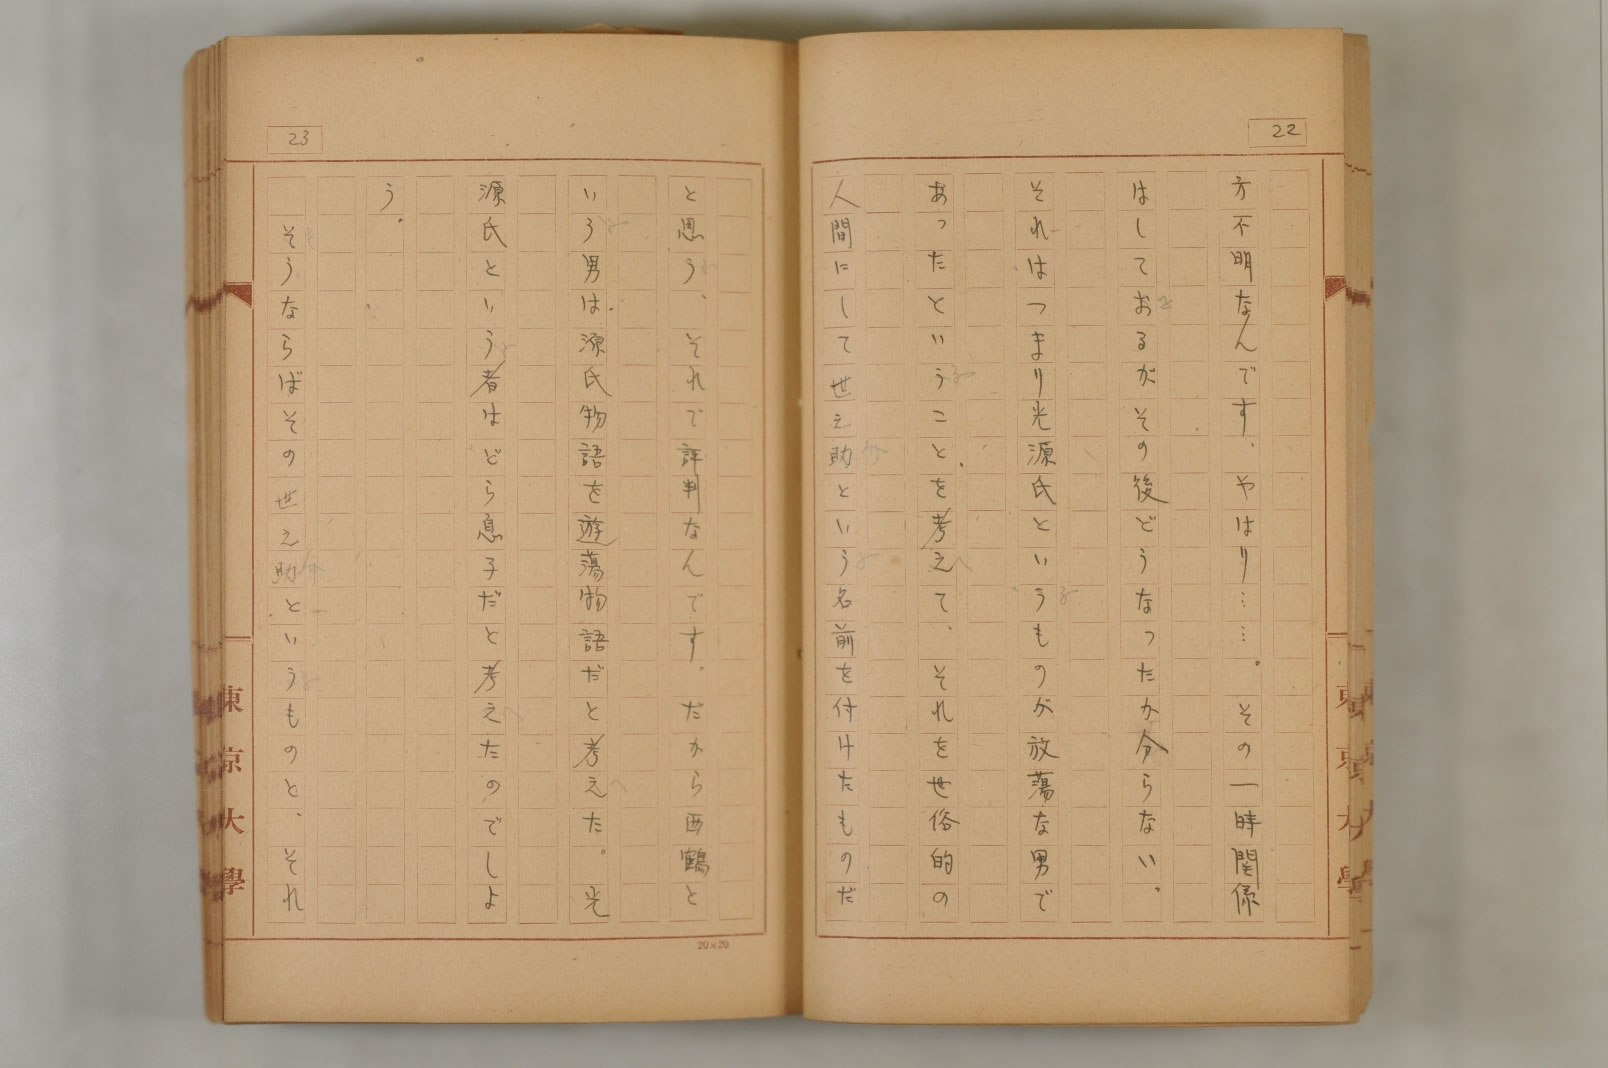 22
方不明なんです、やはり……。その一時関係
はしておるがその後どうなったか分らない。
それはつまり光源氏というものが放蕩な男で
あったということを考えて、それを世俗的の
人間にして世之助という名前を付けたものだ
23
と思う、それで評判なんです。だから西鶴と
いう男は源氏物語を遊蕩物語だと考えた。光
源氏という者はどら息子だと考えたのでしよ
う。
そうならばその世之助というものと、それ
20×20
東京大學